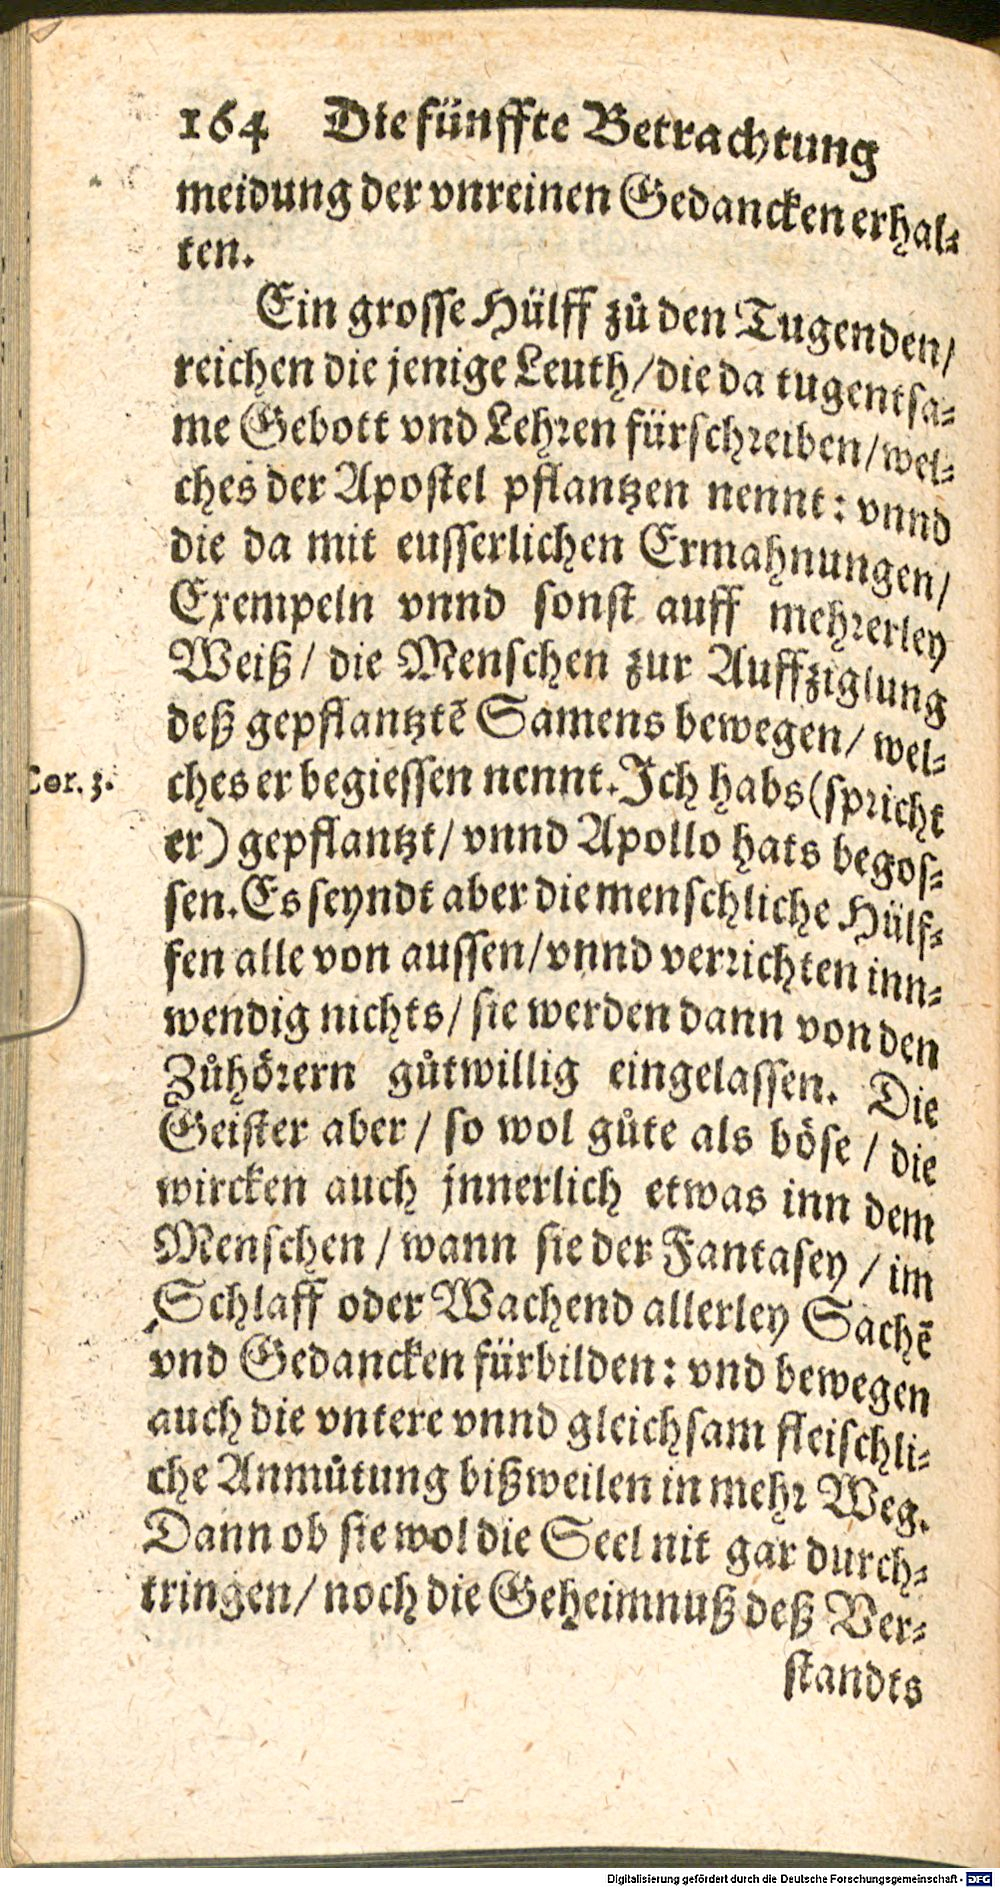 164 Die fünffte Betrachtung
meidung der vnreinen Gedancken erhal-
ten.
Ein grosse Hülff zů den Tugenden/
reichen die jenige Leuth/die da tugentsa-
me Gebott vnd Lehren fürschreiben/wel-
ches der Apostel pflantzen nennt: vnnd
die da mit eusserlichen Ermahnungen/
Exempeln vnnd sonst auff mehrerley
Weiß/ die Menschen zur Auffziglung
deß gepflantztē Samens bewegen/ wel-
Cor. 3.
ches er begiessen nennt. Ich habs (spricht
er) gepflantzt/ vnnd Apollo hats begos-
sen. Es seyndt aber die menschliche Hülf-
fen alle von aussen/vnnd verrichten inn-
wendig nichts/ sie werden dann von den
Zůhörern gůtwillig eingelassen. Die
Geister aber/ so wol gůte als böse/ die
wircken auch jnnerlich etwas inn dem
Menschen/ wann sie der Fantasey/ im
Schlaff oder Wachend allerley Sachē
vnd Gedancken fürbilden: vnd bewegen
auch die vntere vnnd gleichsam fleischli-
che Anmůtung bißweilen in mehr Weg.
Dann ob sie wol die Seel nit gar durch-
tringen/ noch die Geheimnuß deß Ver-
standts
Digitalisierung gefördert durch die Deutsche Forschungsgemeinschaft - DFG